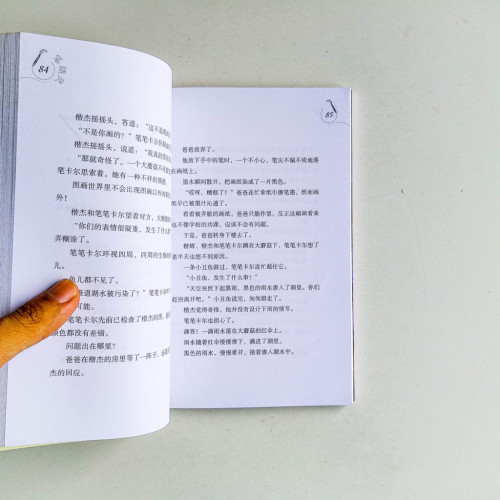 84
楷杰摇摇头，答道：“这不是我
“不是你画的？”笔笔卡尔
楷杰摇摇头，说道：“我真的
“那就奇怪了，一个大蘑菇不可能
笔卡尔思索着。她有一种不祥的预感。
图画世界里不会出现图画以外的
外！
楷杰和笔笔卡尔望着对方，大嘴
“你们的表情很凝重，发生了什么
弄糊涂了。
笔笔卡尔环视四周，四周的生物
儿。
鱼儿都不见了。
道湖水被污染了？”笔笔卡
可能。
笔笔卡尔先前已检查了楷杰的图，
颜色都没有差错。
问题出在哪里？
爸爸在楷杰的房里等了一阵子，
杰的回应。
85
爸爸放弃了。
他放下手中的笔时，一个不小心，笔尖不偏不倚地落
在画纸上。
墨水瞬间散开，把画纸染成了一片黑色。
“哎呀，糟糕了！”爸爸连忙拿纸巾擦笔墨，然而画
纸早已被墨汁沾透了。
看着被弄脏的画纸，爸爸只能作罢，反正这幅画看来
也不像学校的功课，应该不会有问题。
于是，爸爸转身下楼去了。
楷杰、笔笔卡尔蹲在大蘑菇下，笔笔卡尔想了
半天也想不到原因。
一条小丑鱼游过，笔笔卡尔连忙截住它。
“小丑鱼，发生了什么事？”
“天空突然下起黑雨，黑色的雨水渗入了湖里。你们
赶快离开吧。”小丑鱼说完，匆匆游走了。
楷杰觉得奇怪，他并没有设计下雨的情节。
笔笔卡尔也担心了。
滴答！一滴雨水落在大蘑菇的红伞上。
雨水随着红伞慢慢滑下，滴进了湖里。
黑色的雨水，慢慢晕开，接着渗入湖水中。